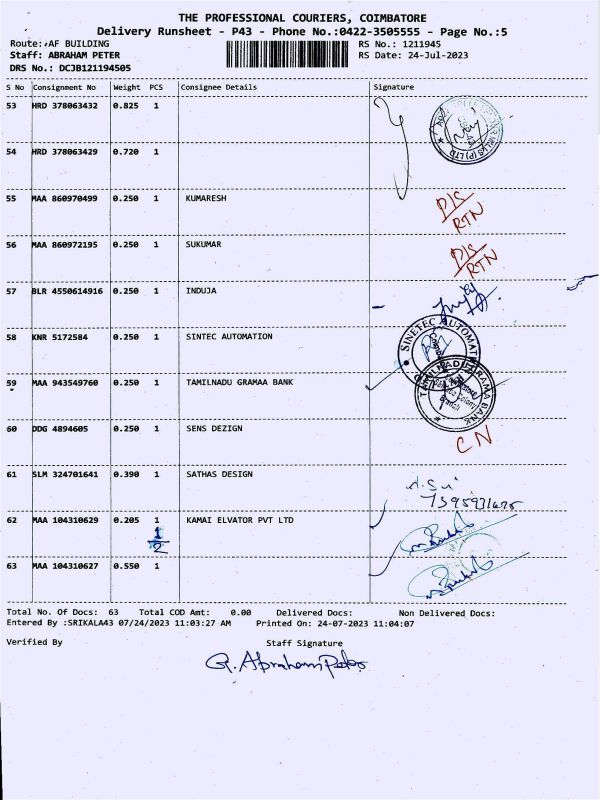 THE PROFESSIONAL COURIERS, COIMBATORE
Delivery Runsheet - P43 - Phone No.:0422-3505555 - Page No.:5
Route: AF BUILDING RS No.: 1211945
Staff: ABRAHAM PETER RS Date: 24-Jul-2023
DRS No.: DCJB121194505
S No Consignment No Weight PCS Consignee Details Signature
53 HRD 378063432 0.825 1
54 HRD 378063429 0.720 1
55 MAA 860970499 0.250 1 KUMARESH D/S RTN
56 MAA 860972195 0.250 1 SUKUMAR D/S RTN
57 BLR 4550614916 0.250 1 INDUJA
58 KNR 5172584 0.250 1 SINTEC AUTOMATION SINETEC AUTOMATI
59 MAA 943549760 0.250 1 TAMILNADU GRAMAA BANK TAMILNADU GRAMA BANK Branch
60 DDG 4894605 0.250 1 SENS DEZIGN CN
61 SLM 324701641 0.390 1 SATHAS DESIGN
62 MAA 104310629 0.205 1 KAMAI ELVATOR PVT LTD
1/2
63 MAA 104310627 0.550 1
Total No. Of Docs: 63 Total COD Amt: 0.00 Delivered Docs: Non Delivered Docs:
Entered By :SRIKALA43 07/24/2023 11:03:27 AM Printed On: 24-07-2023 11:04:07
Verified By Staff Signature